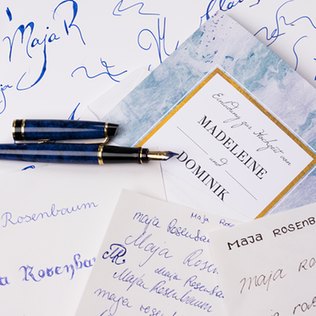 Maja R
Einladung zur Hochzeit von
MADELEINE
und
DOMINIK
Rosenbaum
a Rosenbaum
maja Rosenba
Maja Ros
Maja Rosen
MR
maja Rosenba
Maja Rosenbaum
maja rosen
MAJA ROSENB
maja ro